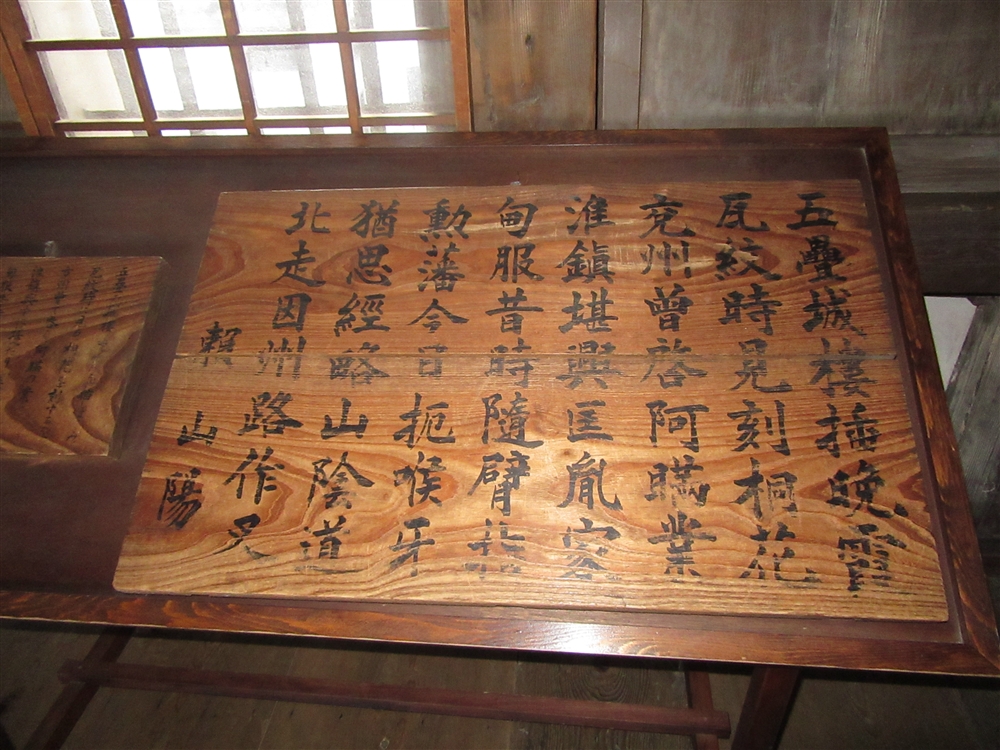 五疊城樓插晩霞
瓦紋時見刻桐花
兗州曾啓阿瞞業
淮鎮堪興匡胤家
甸服昔時隨臂指
勳藩今日扼喉牙
猶思經略山陰道
北走因州路作叉
山陽